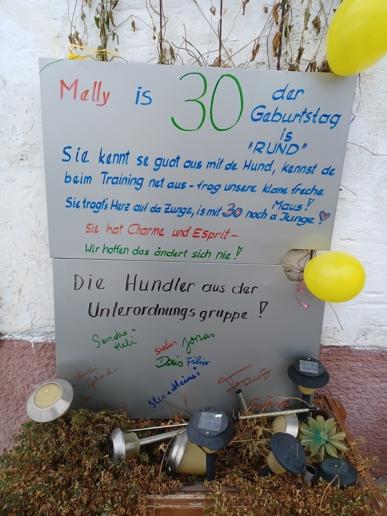 Melly is 30 der
Geburtstag
is
"RUND"
Sie kennt se guat aus mit de Hund, kennst de
beim Training net aus - frag unsere klane freche
Maus!
Sie trogt's Herz auf da Zunge, is mit 30 noch a Junge!
Sie hat Charme und Esprit -
Wir hoffen das ändert sich nie!
Die Hundler aus der
Unterordnungsgruppe!
Sandra
Heli
Jonas
Doris Filip
Franz